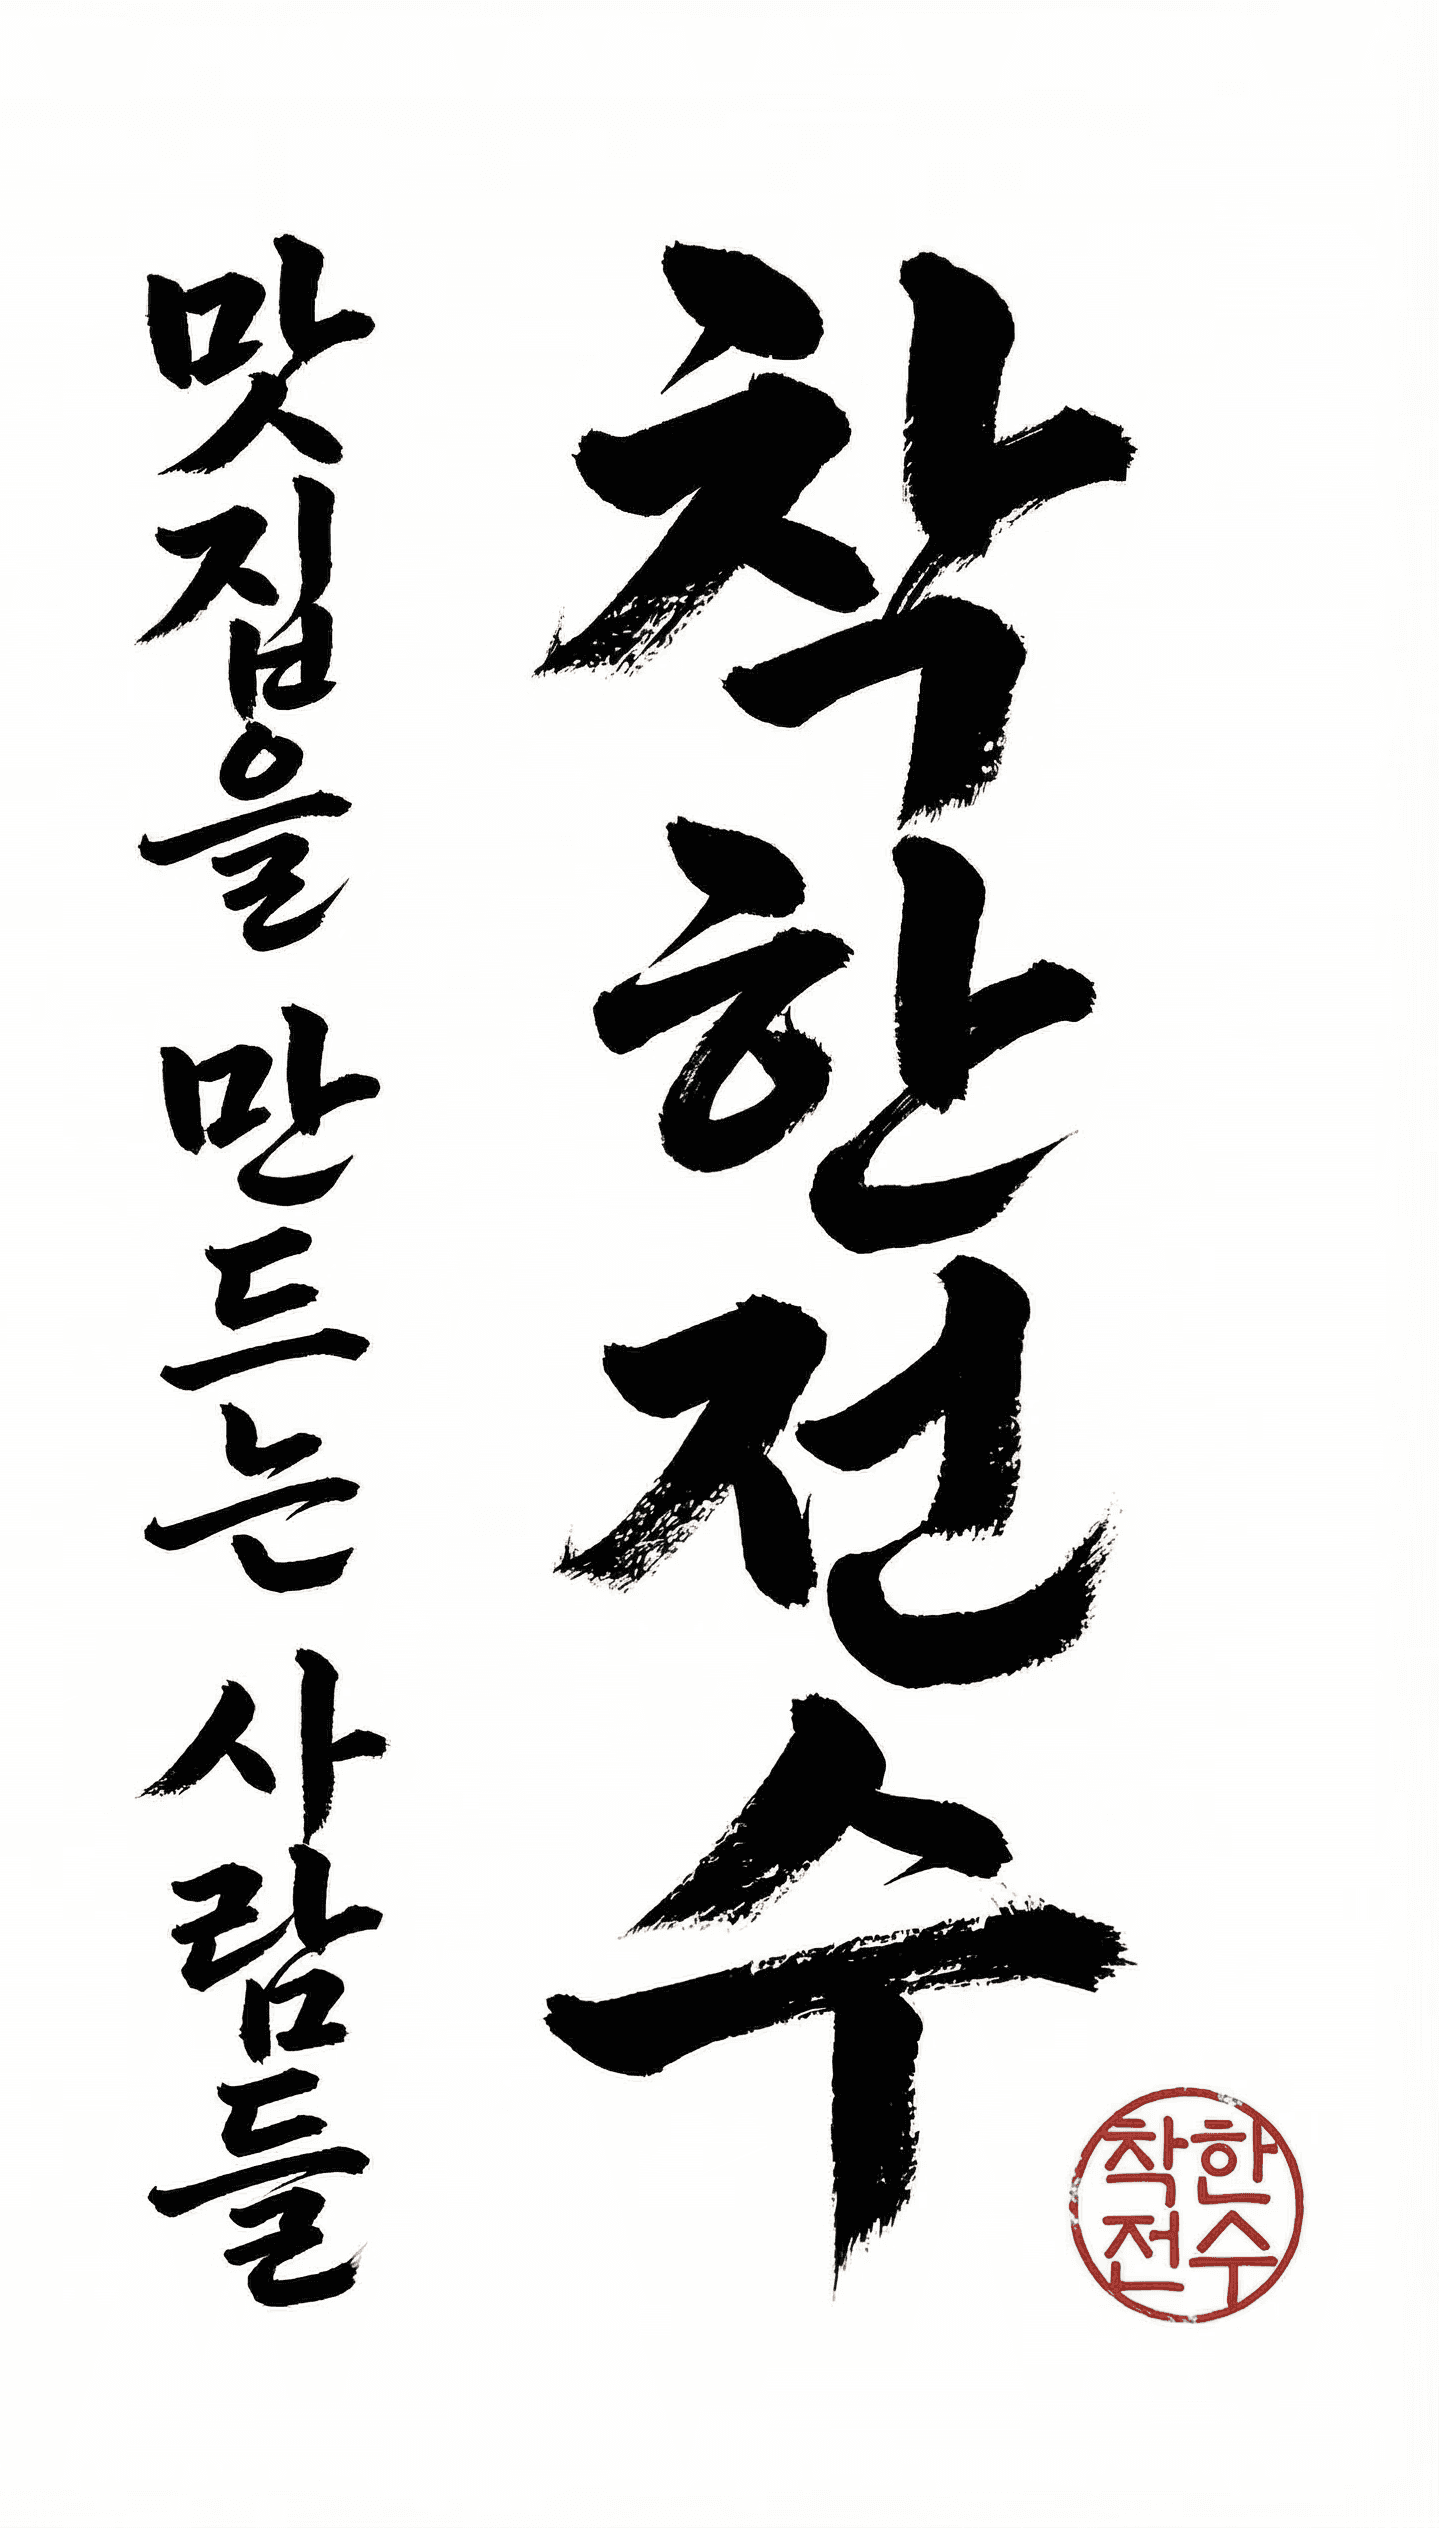 착한전수
맛집을 만드는 사람들
착한
전수